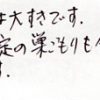 は大すきです.
定の巣ごもりも
す.